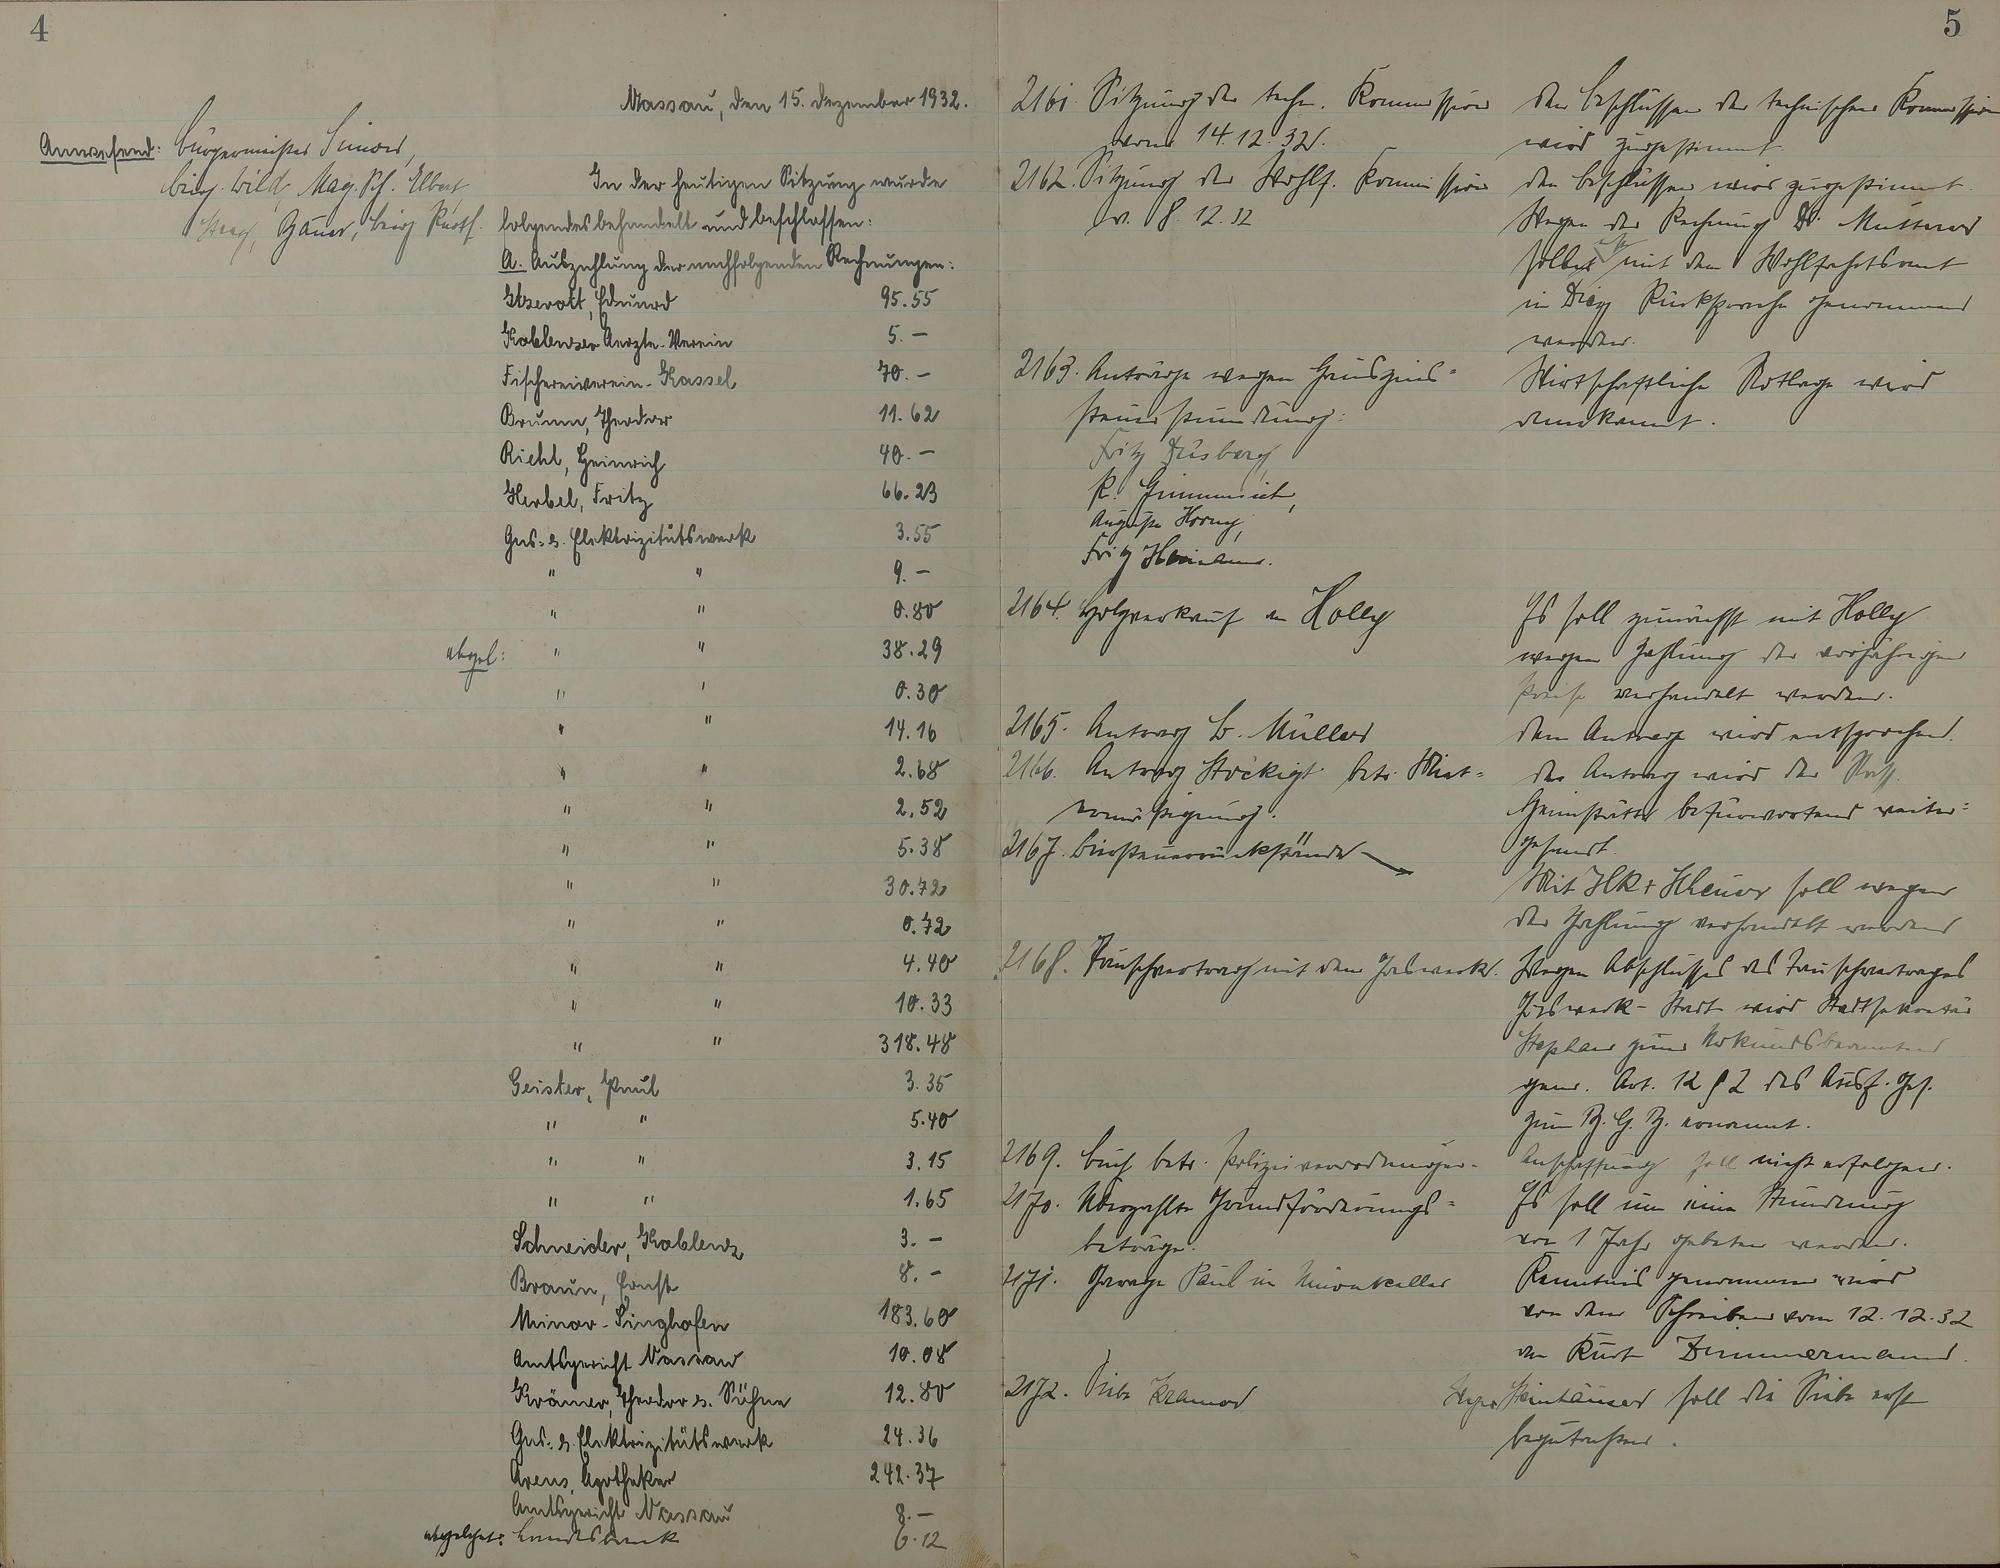 4
Nassau, den 15. Dezember 1932.
Anwesend: Bürgermeister
Beig. Wild, Mag. Sch. Elbert
Bauer, Beig
In der heutigen Sitzung wurde
folgendes behandelt und beschlossen:
A. Auszahlung der nachfolgenden Rechnungen:
Edmund 95.55
Koblenzer Aerzte-Verein 5.-
Fischereiverein-Kassel 70.-
Brumm, Theodor 11.62
Riehl, Heinrich 40.-
Herbel, Fritz 66.23
Gas- u. Elektrizitätswerk 3.55
" " 9.-
" " 0.80
abgel: " " 38.29
" " 0.30
" " 14.16
" " 2.68
" " 2.52
" " 5.38
" " 30.72
" " 0.72
" " 4.40
" " 10.33
" " 318.48
Geister, Paul 3.35
" " 5.40
" " 3.15
" " 1.65
Schneider, Koblenz 3.-
Braun, Ernst 8.-
Minor-Singhofen 183.60
Amtsgericht Nassau 10.08
Krämer, Theodor u. Söhne 12.80
Gas- u. Elektrizitätswerk 24.36
Arens, Apotheker 242.37
Amtsgericht Nassau 8.-
abgelehnt: Landesbank 6.12
5
2161. Sitzung der techn. Kommission
vom 14.12.32.
Den Beschlüssen der technischen Kommission
wird zugestimmt.
2162. Sitzung der Wohlf. Kommission
v. 8.12.32
Den Beschlüssen wird zugestimmt.
Wegen der Rechnung Dr.
soll mit dem Wohlfahrtsamt
in Diez Rücksprache genommen
werden.
2163. Anträge wegen Hauszins-
steuerstundung:
Fritz Düsberg,
K.
August Horny,
Fritz
Wirtschaftliche Notlage wird
anerkannt.
2164. Holzverkauf an Holly
Es soll zunächst mit Holly
wegen Zahlung der vorjährigen
Preise verhandelt werden.
2165. Antrag L. Müller
Dem Antrag wird entsprochen.
2166. Antrag Stöckigt betr. Miet-
ermäßigung.
Der Antrag wird der Nass.
Heimstätte befürwortend weiter-
gesandt.
2167. Biersteuerrückstände
Mit soll wegen
der Zahlung verhandelt werden
2168. Tauschvertrag mit dem Gaswerk.
Wegen Abschlusses des Tauschvertrages
Gaswerk-Stadt wird Stadtsekretär
Stephan zum Urkundsbeamten
gem. Art. 12 § 2 des Ausf. Ges.
zum B.G.B. ernannt.
2169. Buch betr. Polizeiverordnungen.
Anschaffung soll nicht erfolgen.
2170. Überzahlte Grundförderungs-
beträge.
Es soll um eine Stundung
von 1 Jahr gebeten werden.
2171. Garage Paul im Unionkeller
Kenntnis genommen wird
von dem Schreiben vom 12.12.32
an Kurt Zimmermann.
2172. Siebe Kramer
soll die Siebe erst
begutachten.